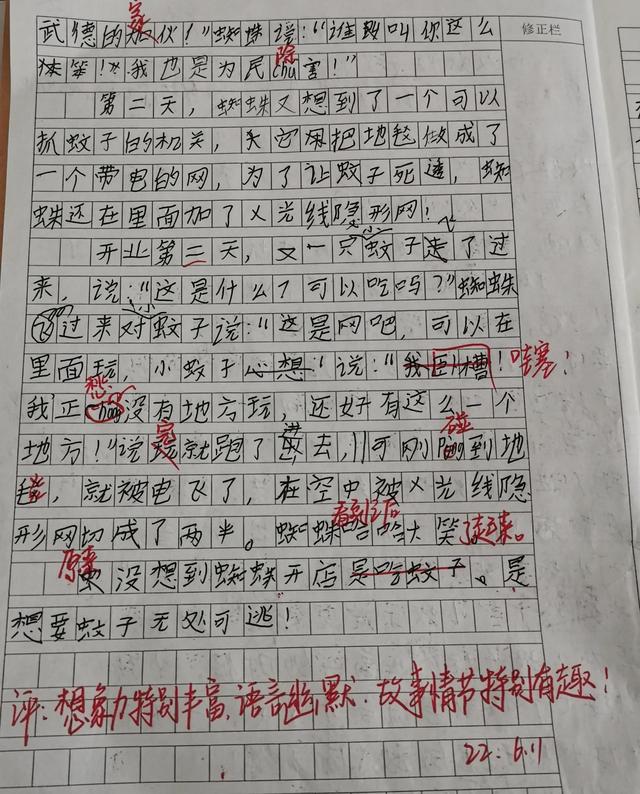 修正栏
武德的家伙！”蜘蛛说：“谁叫你这么
笨！”我也是为民除chu害！”
第二天，蜘蛛又想到了一个可以
抓蚊子的机关，把地毯做成了
一个带电的网，为了让蚊子死透，蜘
蛛还在里面加了X光线隐形网！
开业第二天，又一只蚊子飞了过
来，说：“这是什么？可以吃吗？”蜘蛛
飞过来对小蚊子说：“这是网吧，可以在
里面玩，小蚊子心想“说：“我卧槽！哇塞！
我正愁没有地方玩，还好有这么一个
地方！”说完就跑了进去，可刚碰到地
毯，就被电飞了，在空中被X光线隐
形网切成了两半。蜘蛛看到后哈哈大笑了起来。
原来没想到蜘蛛开店是吃蚊子。是
想要蚊子无处可逃！
评：想象力特别丰富，语言幽默，故事情节特别有趣！
22.6.11